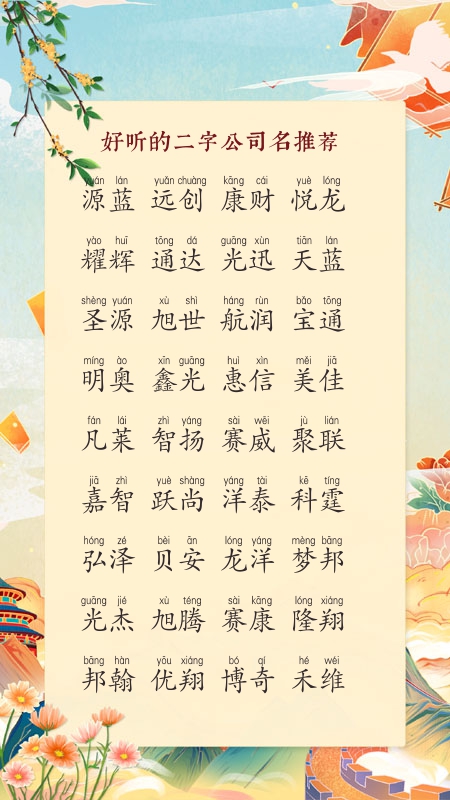 好听的二字公司名推荐
yuán lán yuǎn chuàng kāng cái yuè lóng
源蓝 远创 康财 悦龙
yào huī tōng dá guāng xùn tiān lán
耀辉 通达 光迅 天蓝
shèng yuán xù shì háng rùn bǎo tōng
圣源 旭世 航润 宝通
míng ào xīn guāng huì xìn měi jiā
明奥 鑫光 惠信 美佳
fán lái zhì yáng sài wēi jù lián
凡莱 智扬 赛威 聚联
jiā zhì yuè shàng yáng tài kē tíng
嘉智 跃尚 洋泰 科霆
hóng zé bèi ān lóng yáng mèng bāng
弘泽 贝安 龙洋 梦邦
guāng jié xù téng sài kāng lóng xiáng
光杰 旭腾 赛康 隆翔
bāng hàn yōu xiáng bó qí hé wéi
邦翰 优翔 博奇 禾维